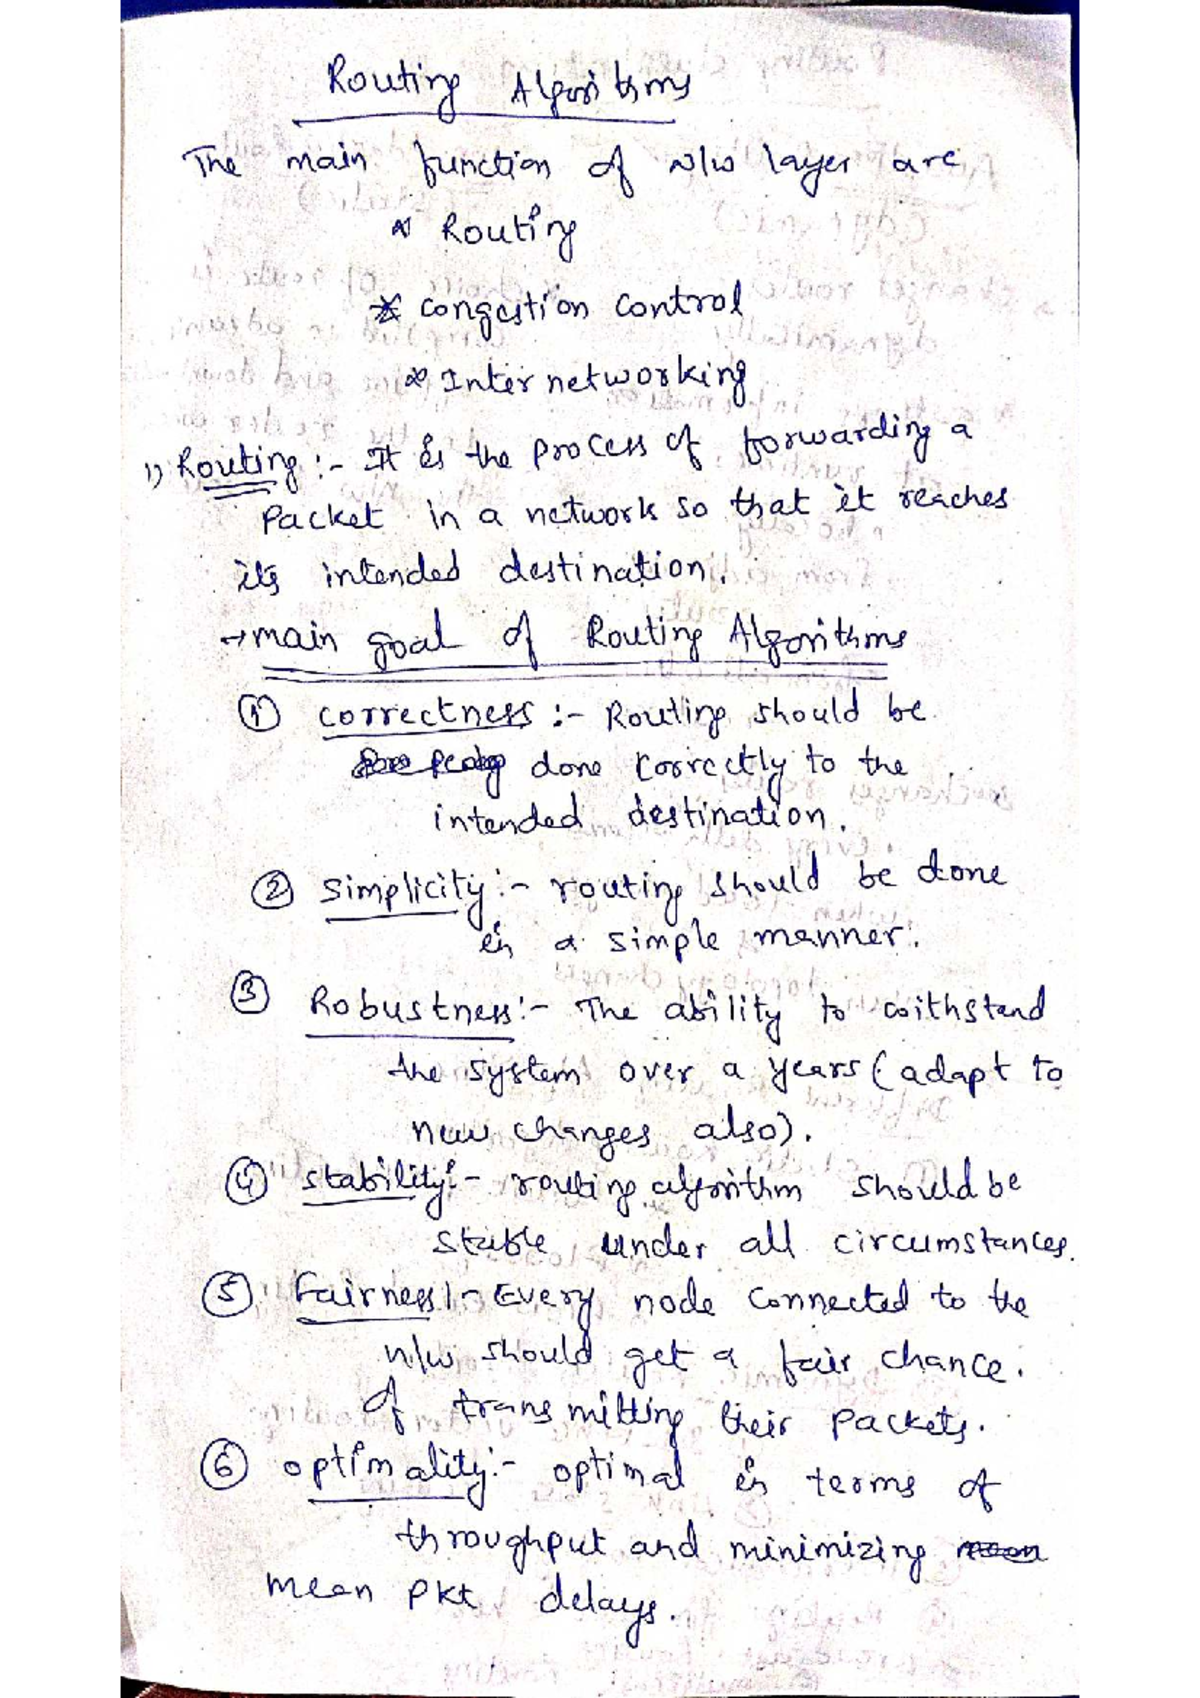 Routing Algorithms
The main function of N/w layer are
* Routing
* congestion control
* Inter networking
1) Routing :- It is the process of forwarding a
packet in a network so that it reaches
its intended destination.
→ main goal of Routing Algorithms
① correctness :- Routing should be
done correctly to the
intended destination.
② simplicity :- routing should be done
in a simple manner.
③ Robustness :- The ability to withstand
the system over a years (adapt to
new changes also).
④ stability :- routing algorithm should be
stable under all circumstances.
⑤ Fairness :- Every node connected to the
n/w should get a fair chance.
of transmitting their packets.
⑥ optimality :- optimal in terms of
throughput and minimizing
mean pkt delays.